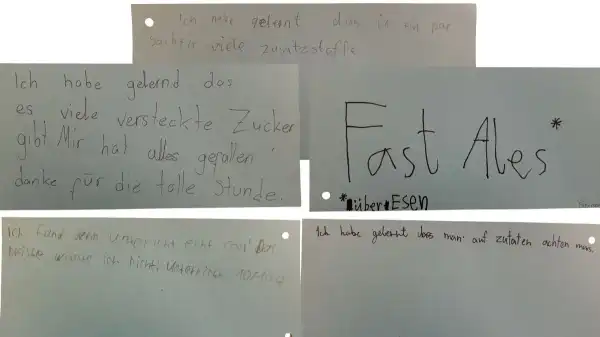 Ich habe gelernt das in ein par
sachen viele zusatzstoffe
Ich habe gelernd das
es viele versteckte Zucker
gibt Mir hat alles gefallen
danke für die tolle Stunde.
Fast Ales*
*über Esen
Ich fand denn Unterricht echt cool
würde ich nicht
Ich habe gelernt das man auf zutaten achten mus.